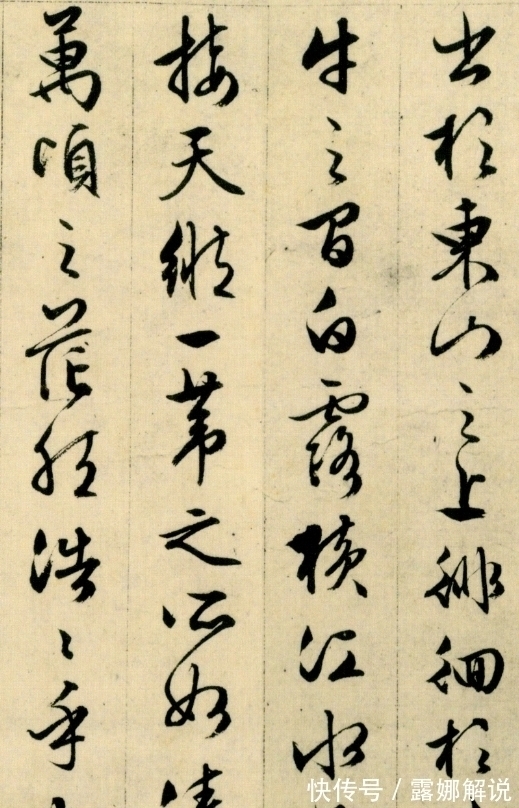 出於東山之上徘徊於
牛之間白露橫江水
接天縱一葦之所如
萬頃之茫然浩〻乎
快传号 / 露娜解说